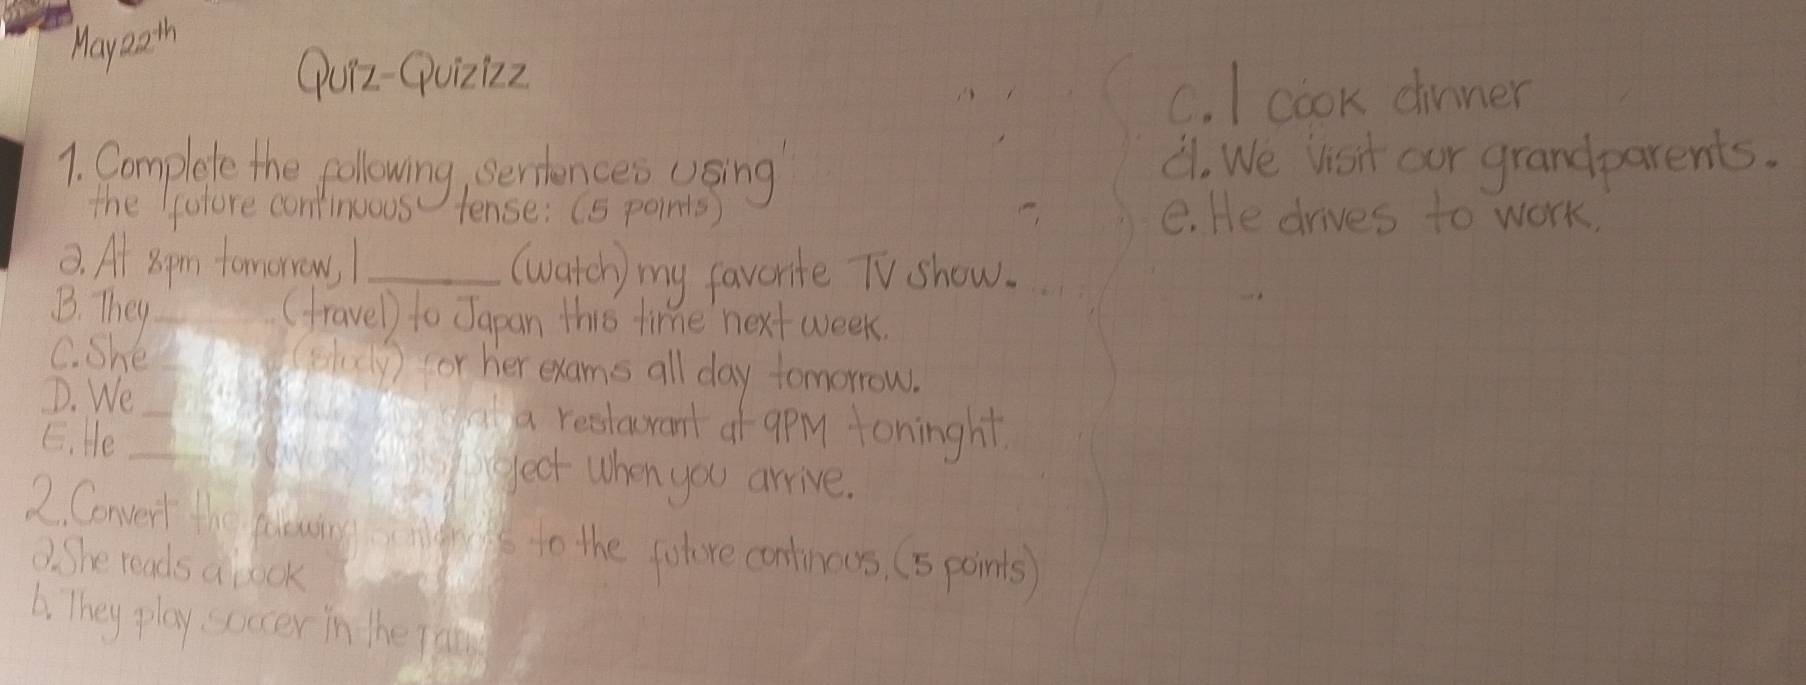 May 22th
Quiz-Quizizz
1. Complete the following sentences using
the future continuous tense: (5 points)
a. At 8pm tomorrow, I ______ (watch) my favorite TV show.
B. They ______ (travel) to Japan this time next week.
C. She ______ (study) for her exams all day tomorrow.
D. We ______ at a restaurant at 9PM toninght.
E. He ______ project when you arrive.
2. Convert the following sentences to the future continous. (5 points)
a. She reads a book
b. They play soccer in the
c. I cook dinner
d. We visit our grandparents.
e. He drives to work.